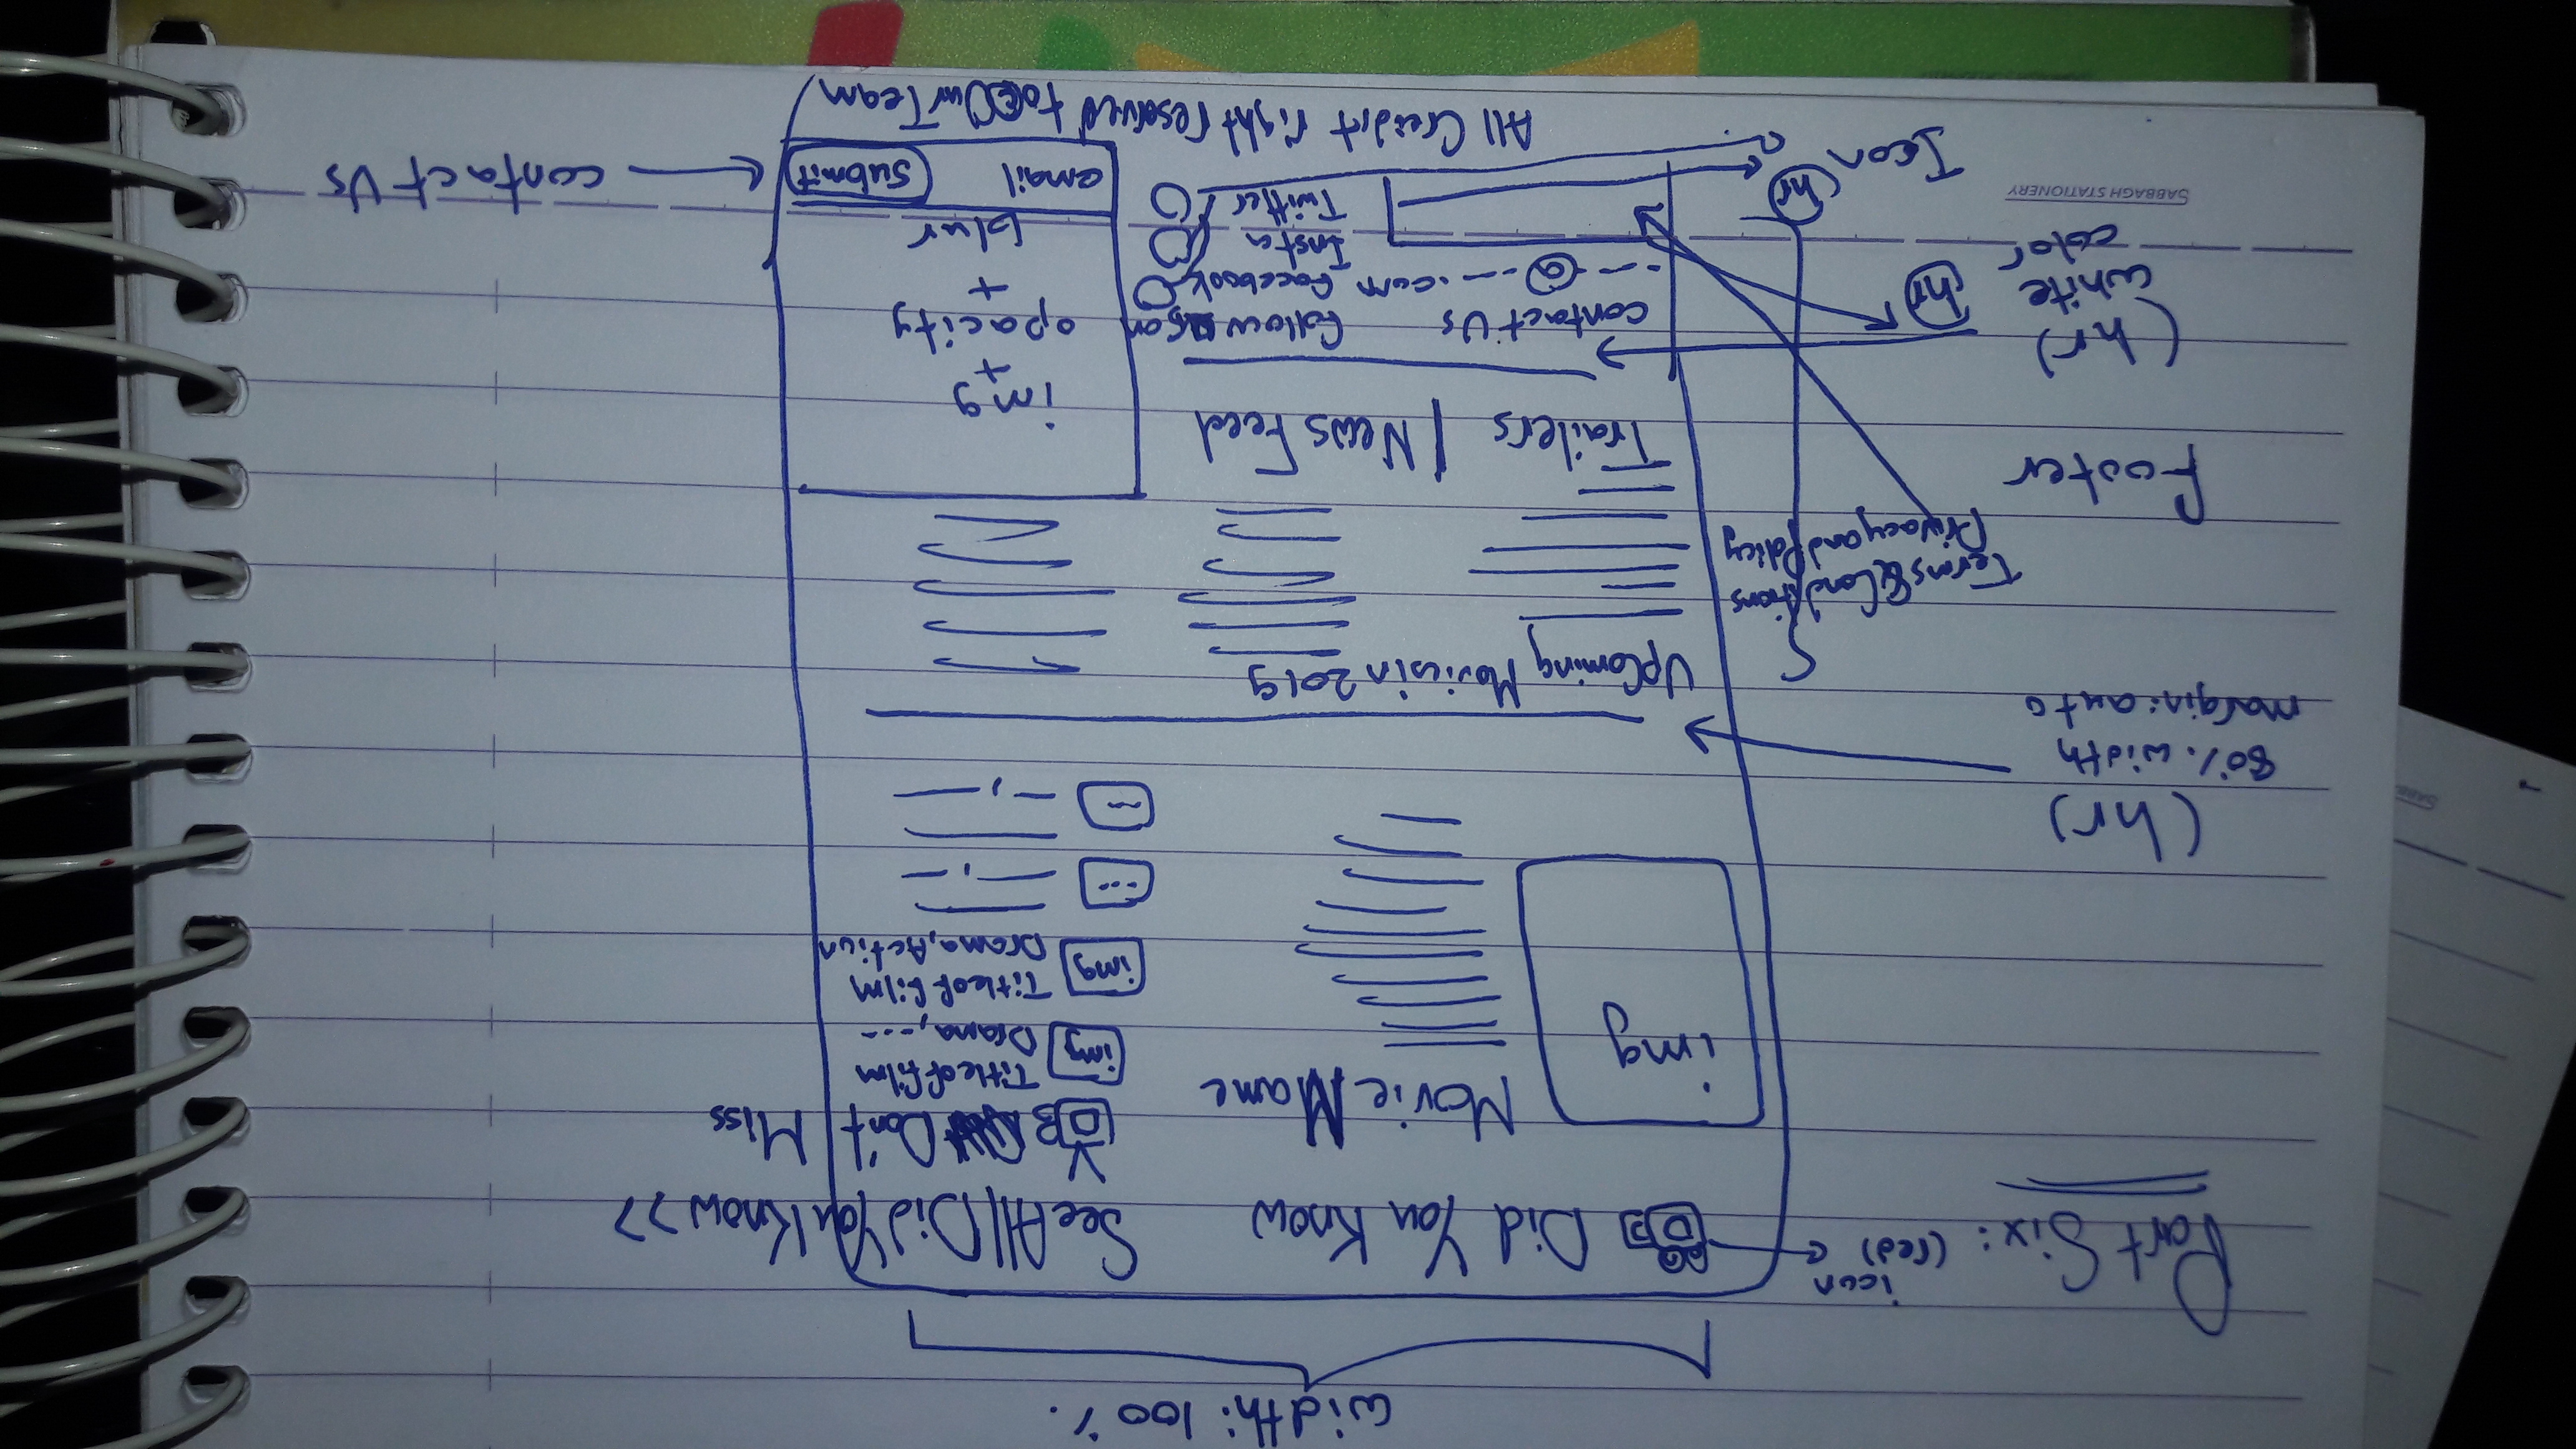 width: 100%.
Part Six:
icon
(red)
Did You Know
See All Did You Know >>
Don't Miss
img
Movie Name
img
Title of film
Drama, ---
img
Title of film
Drama, Action
(hr)
80%. width
margin: auto
UpComing Movies in 2019
Terms & Conditions
Privacy and Policy
footer
Trailers / News Feed
img
+
opacity
+
blur
(hr)
white
color
hr
contact Us
---@---.com
follow us on
facebook
Insta
Twitter
email
submit
contact Us
SABBAGH STATIONERY
Icon
hr
All Creidit right reserved to © Our Team
SABB